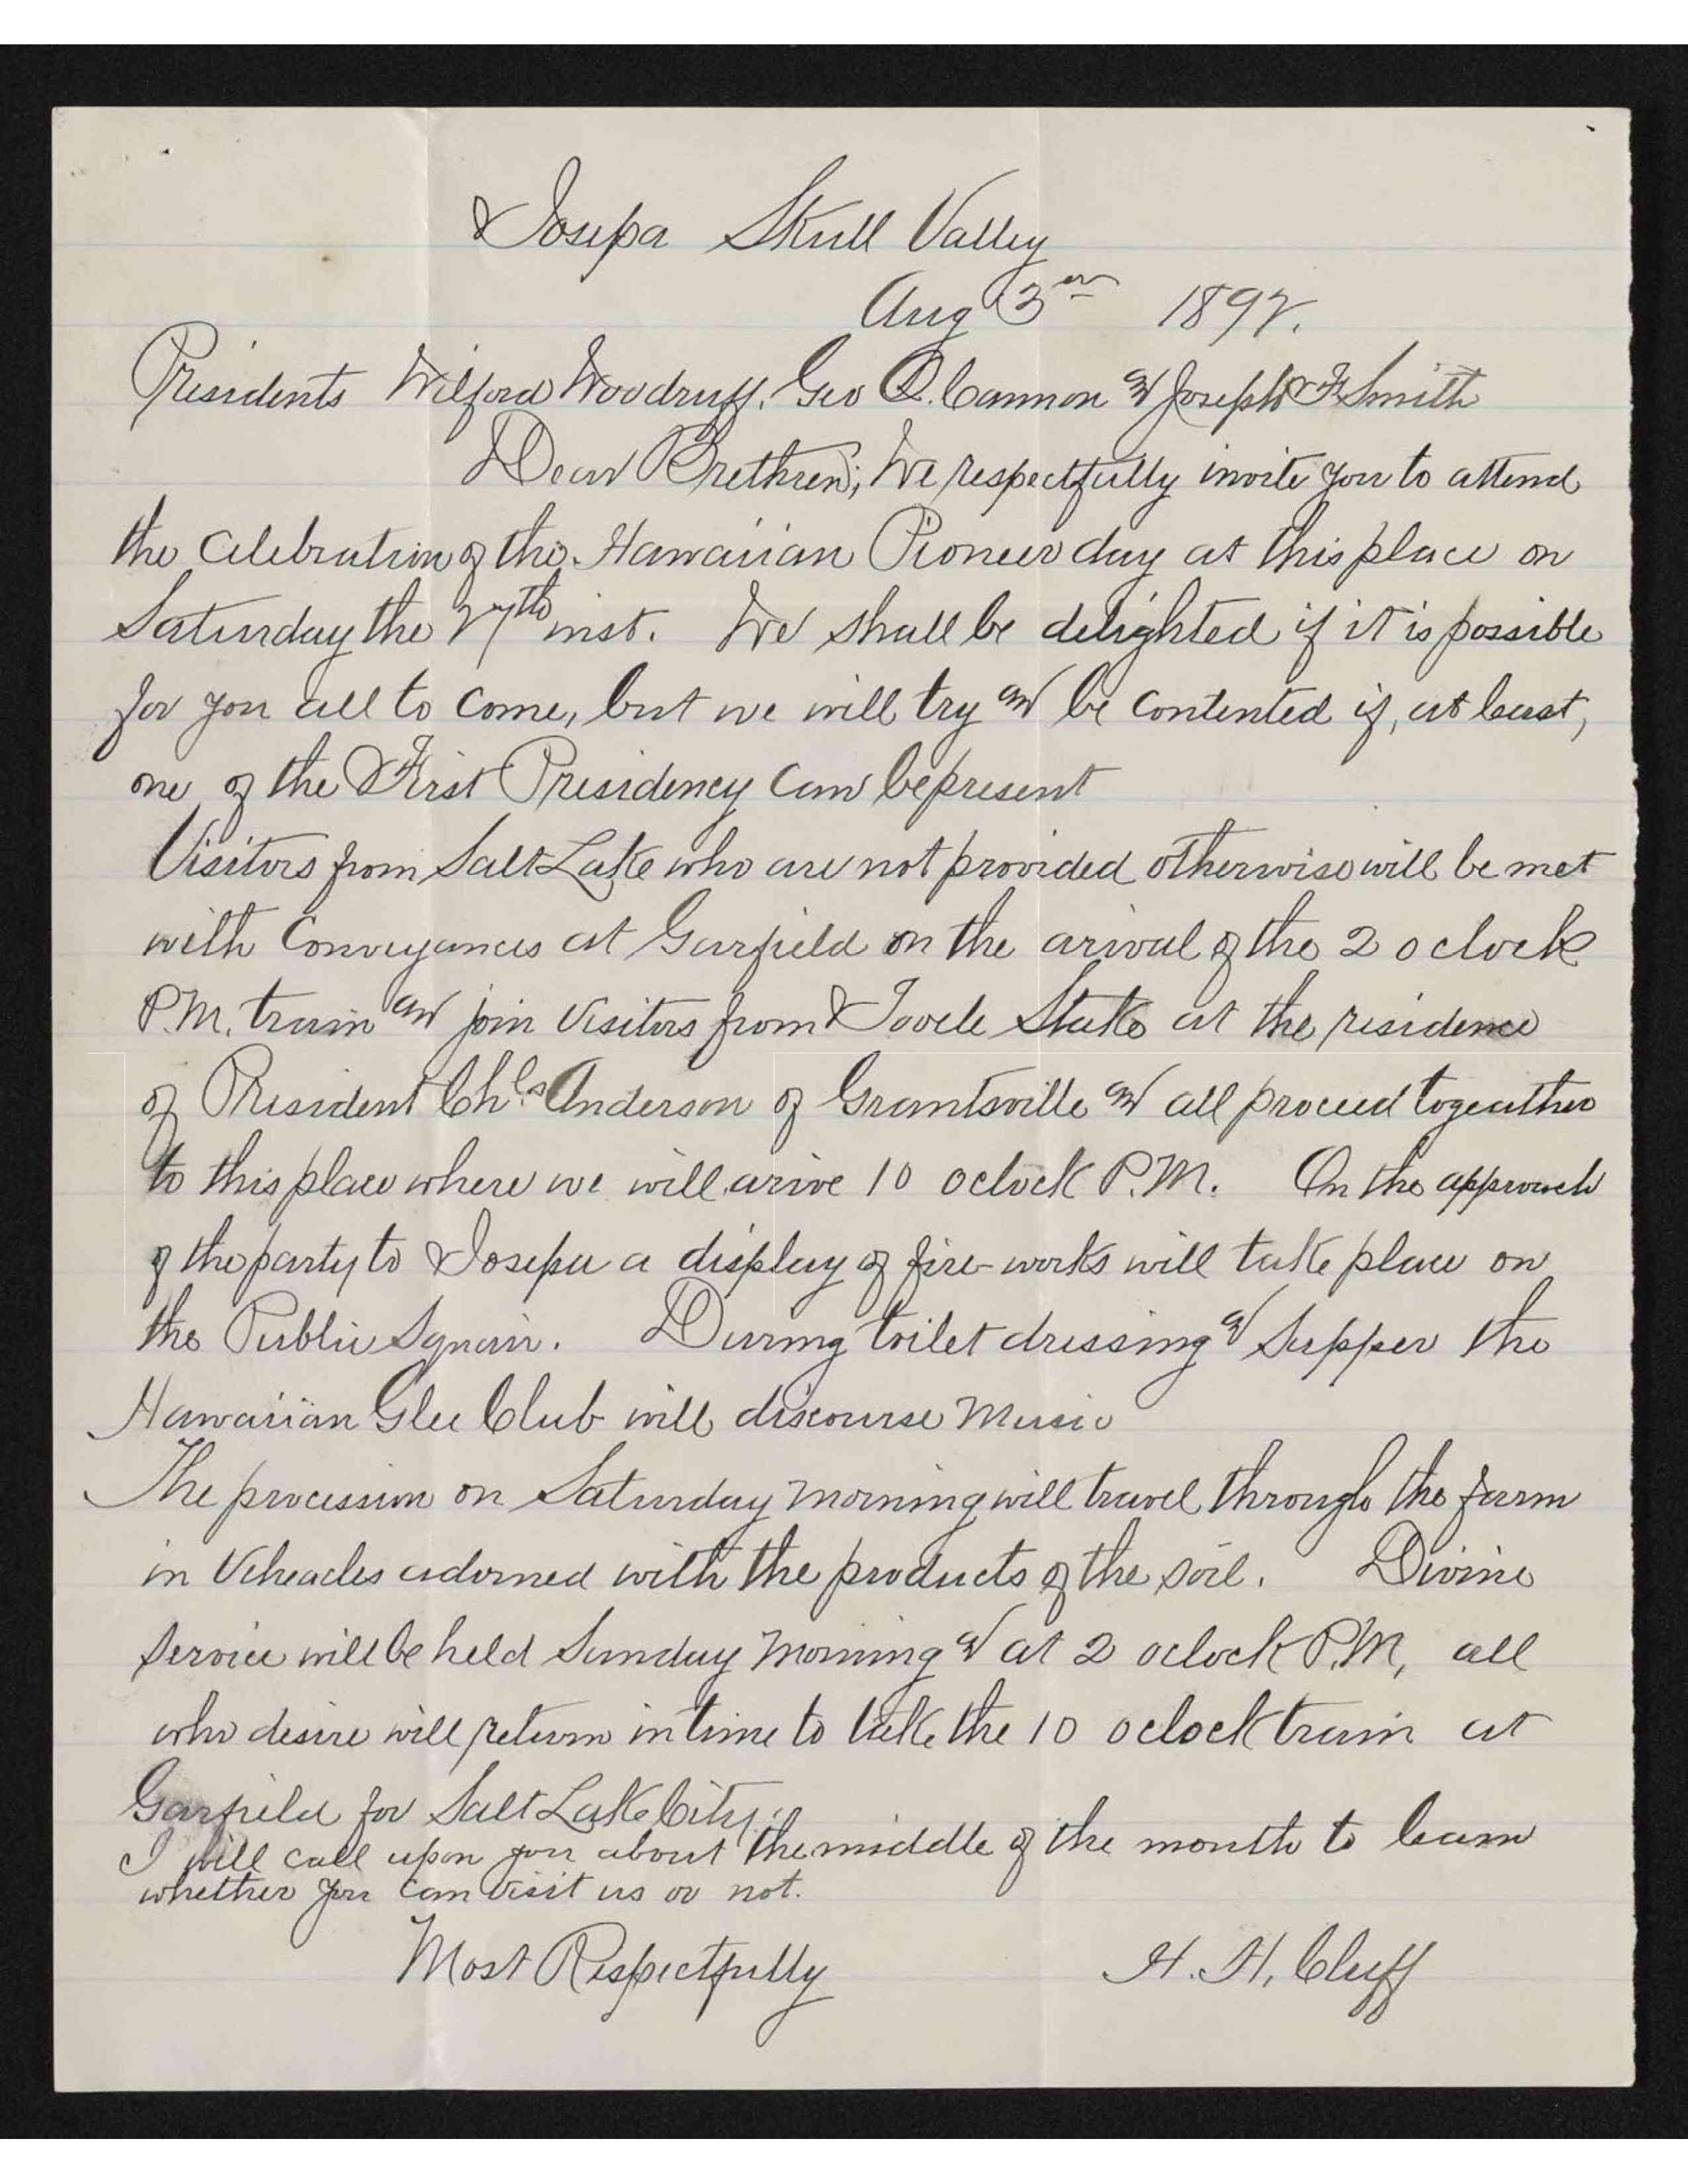 Iosepa Skull Valley
Aug 3rd 1892.
Presidents Wilford Woodruff, Geo Q. Cannon and Joseph F. Smith
Dear Brethren; We respectfully invite you to attend
the Celebration of the Hawaiian Pioneer day at this place on
Saturday the 27th inst. We shall be delighted if it is possible
for you all to come, but we will try and be contented if, at least,
one of the First Presidency can be present
Visitors from Salt Lake who are not provided otherwise will be met
with Conveyances at Garfield on the arival of the 2 o clock
P.M. train and join Visitors from Tooele Stake at the residence
of President Chls Anderson of Grantsville and all proceed togeather
to this place where we will arive 10 oclock P.M. On the approach
of the party to Iosepa a display of fire-works will take place on
the Public Squair. During toilet dressing & Supper the
Hawaiian Glee Club will discourse Music
The procession on Saturday morning will travel through the farm
in Veheacles adorned with the products of the soil. Divine
Service will be held Sunday morning & at 2 oclock P.M, all
who desire will return in time to take the 10 oclock train at
Garfield for Salt Lake City.
I will call upon you about the middle of the month to learn
whether you can visit us or not.
Most Respectfully H. H. Cluff